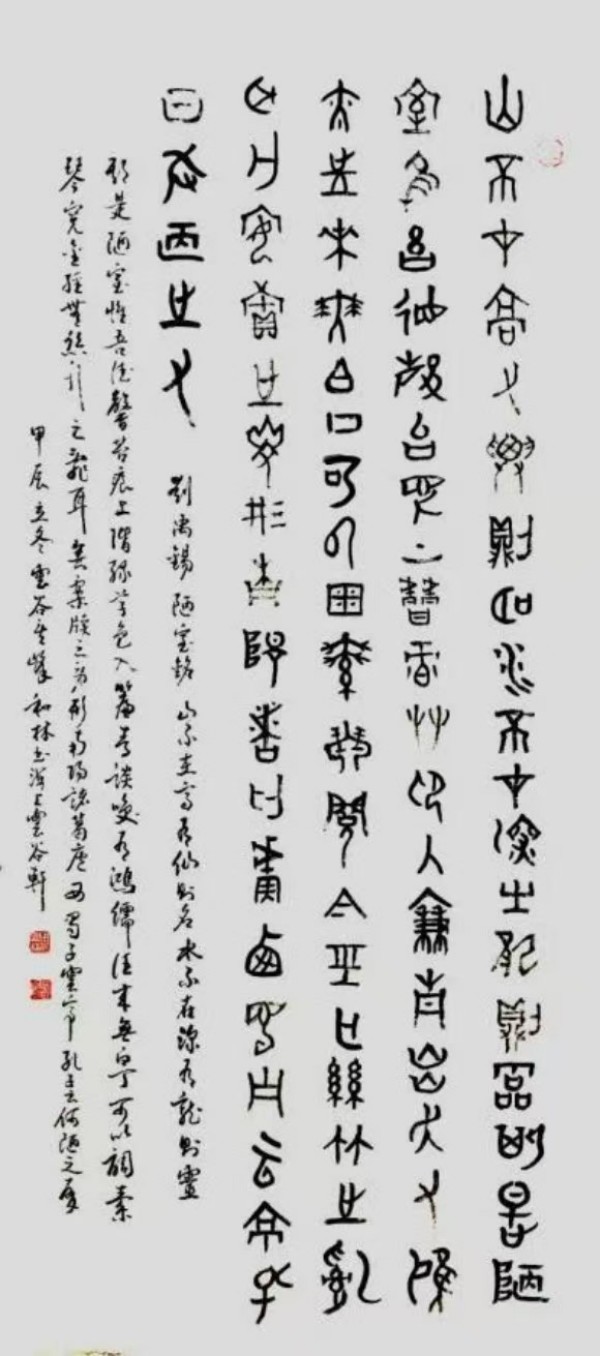 山不才高又僊則名水不才深又龍則霝斯是陋
室隹吾德馨台痕上階綠艸色入簾青談笑又鴻
需往來無白丁可以周素琴閱金巠亡絲竹之亂
耳亡案牘之勞形南陽諸葛廬西蜀子云亭孔
曰何陋之又
劉禹錫 陋室銘 山不在高有仙則名水不在深有龍則靈
斯是陋室惟吾德馨苔痕上階綠草色入簾青談笑有鴻儒往來無白丁可以調素
琴閱金經無絲竹之亂耳無案牘之勞形南陽諸葛廬西蜀子雲亭孔子云何陋之有
甲辰立冬雲谷和林書上雲谷軒